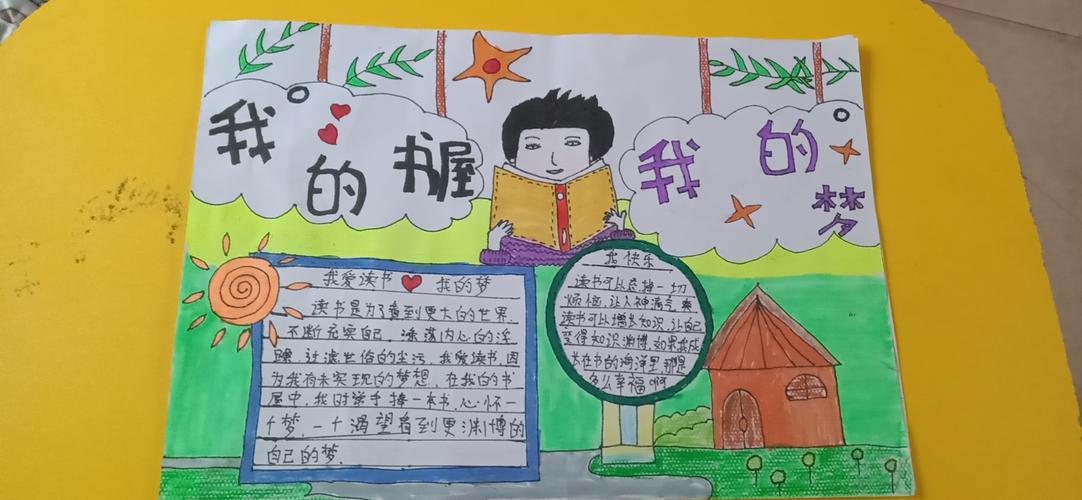 我的书屋
我的梦
我爱读书 我的梦
读书是为了看到更大的世界
不断充实自己，涤荡内心的浮
躁，过滤世俗的尘污，我爱读书，因
为我有未实现的梦想，在我的书
屋中，我时常手捧一本书，心怀一
个梦，一个渴望看到更渊博的
自己的梦。
我快乐
读书可以忘掉一切
烦恼，让人神清气爽
读书可以增长知识，让自己
变得知识渊博，如果我成
长在书的海洋里那是
多么幸福啊